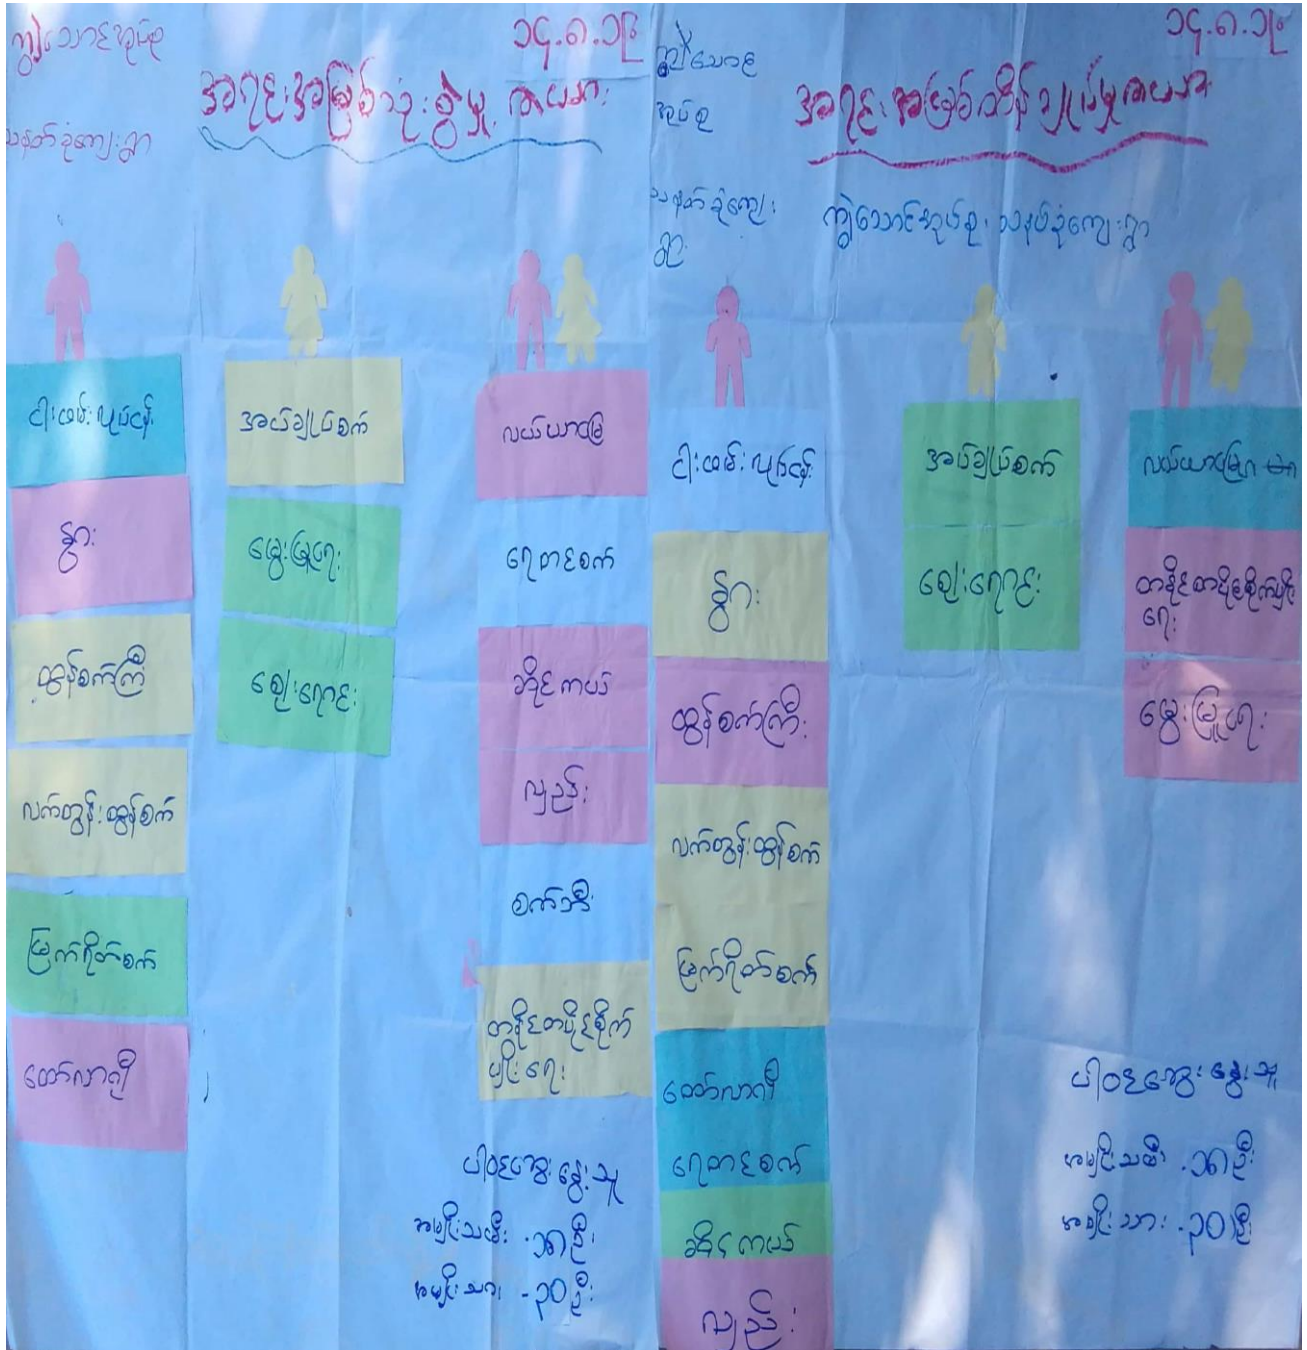 ကျွဲသောင်အုပ်စု
၁၄.၈.၁၉
အရင်းအမြစ်သုံးစွဲမှု ဇယား
သနပ်ခုံကျေးရွာ
ငါးဖမ်းလုပ်ငန်း
နွား
ထွန်စက်ကြီး
လက်တွန်းထွန်စက်
မြက်ရိတ်စက်
ထော်လာဂျီ
အပ်ချုပ်စက်
မွေးမြူရေး
ဈေးရောင်း
လယ်ယာမြေ
ရေတင်စက်
ဆိုင်ကယ်
လှည်း
စက်ဘီး
တနိုင်တပိုင်စိုက်
ပျိုးရေး
ပါဝင်ဆွေးနွေးသူ
အမျိုးသမီး - ၁၈ဦး
အမျိုးသား - ၃၀ဦး
ကျွဲသောင်
အုပ်စု
၁၄.၈.၁၉
အရင်းအမြစ်ထိန်ချုပ်မှုဇယား
သနပ်ခုံကျေး
ရွာ
ကျွဲသောင်အုပ်စု၊ သနပ်ခုံကျေးရွာ
ငါးဖမ်းလုပ်ငန်း
နွား
ထွန်စက်ကြီး
လက်တွန်းထွန်စက်
မြက်ရိတ်စက်
ထော်လာဂျီ
ရေတင်စက်
ဆိုင်ကယ်
လှည်း
အပ်ချုပ်စက်
ဈေးရောင်း
လယ်ယာမြေ
တနိုင်တပိုင်စိုက်ပျိုး
ရေး
မွေးမြူရေး
ပါဝင်ဆွေးနွေးသူ
အမျိုးသမီး - ၁၈ဦး
အမျိုးသား - ၃၀ဦး